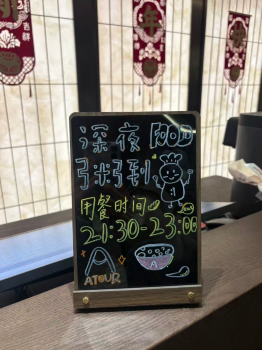 深夜FOOD
粥到
用餐时间
21:30-23:00
A
A
ATOUR